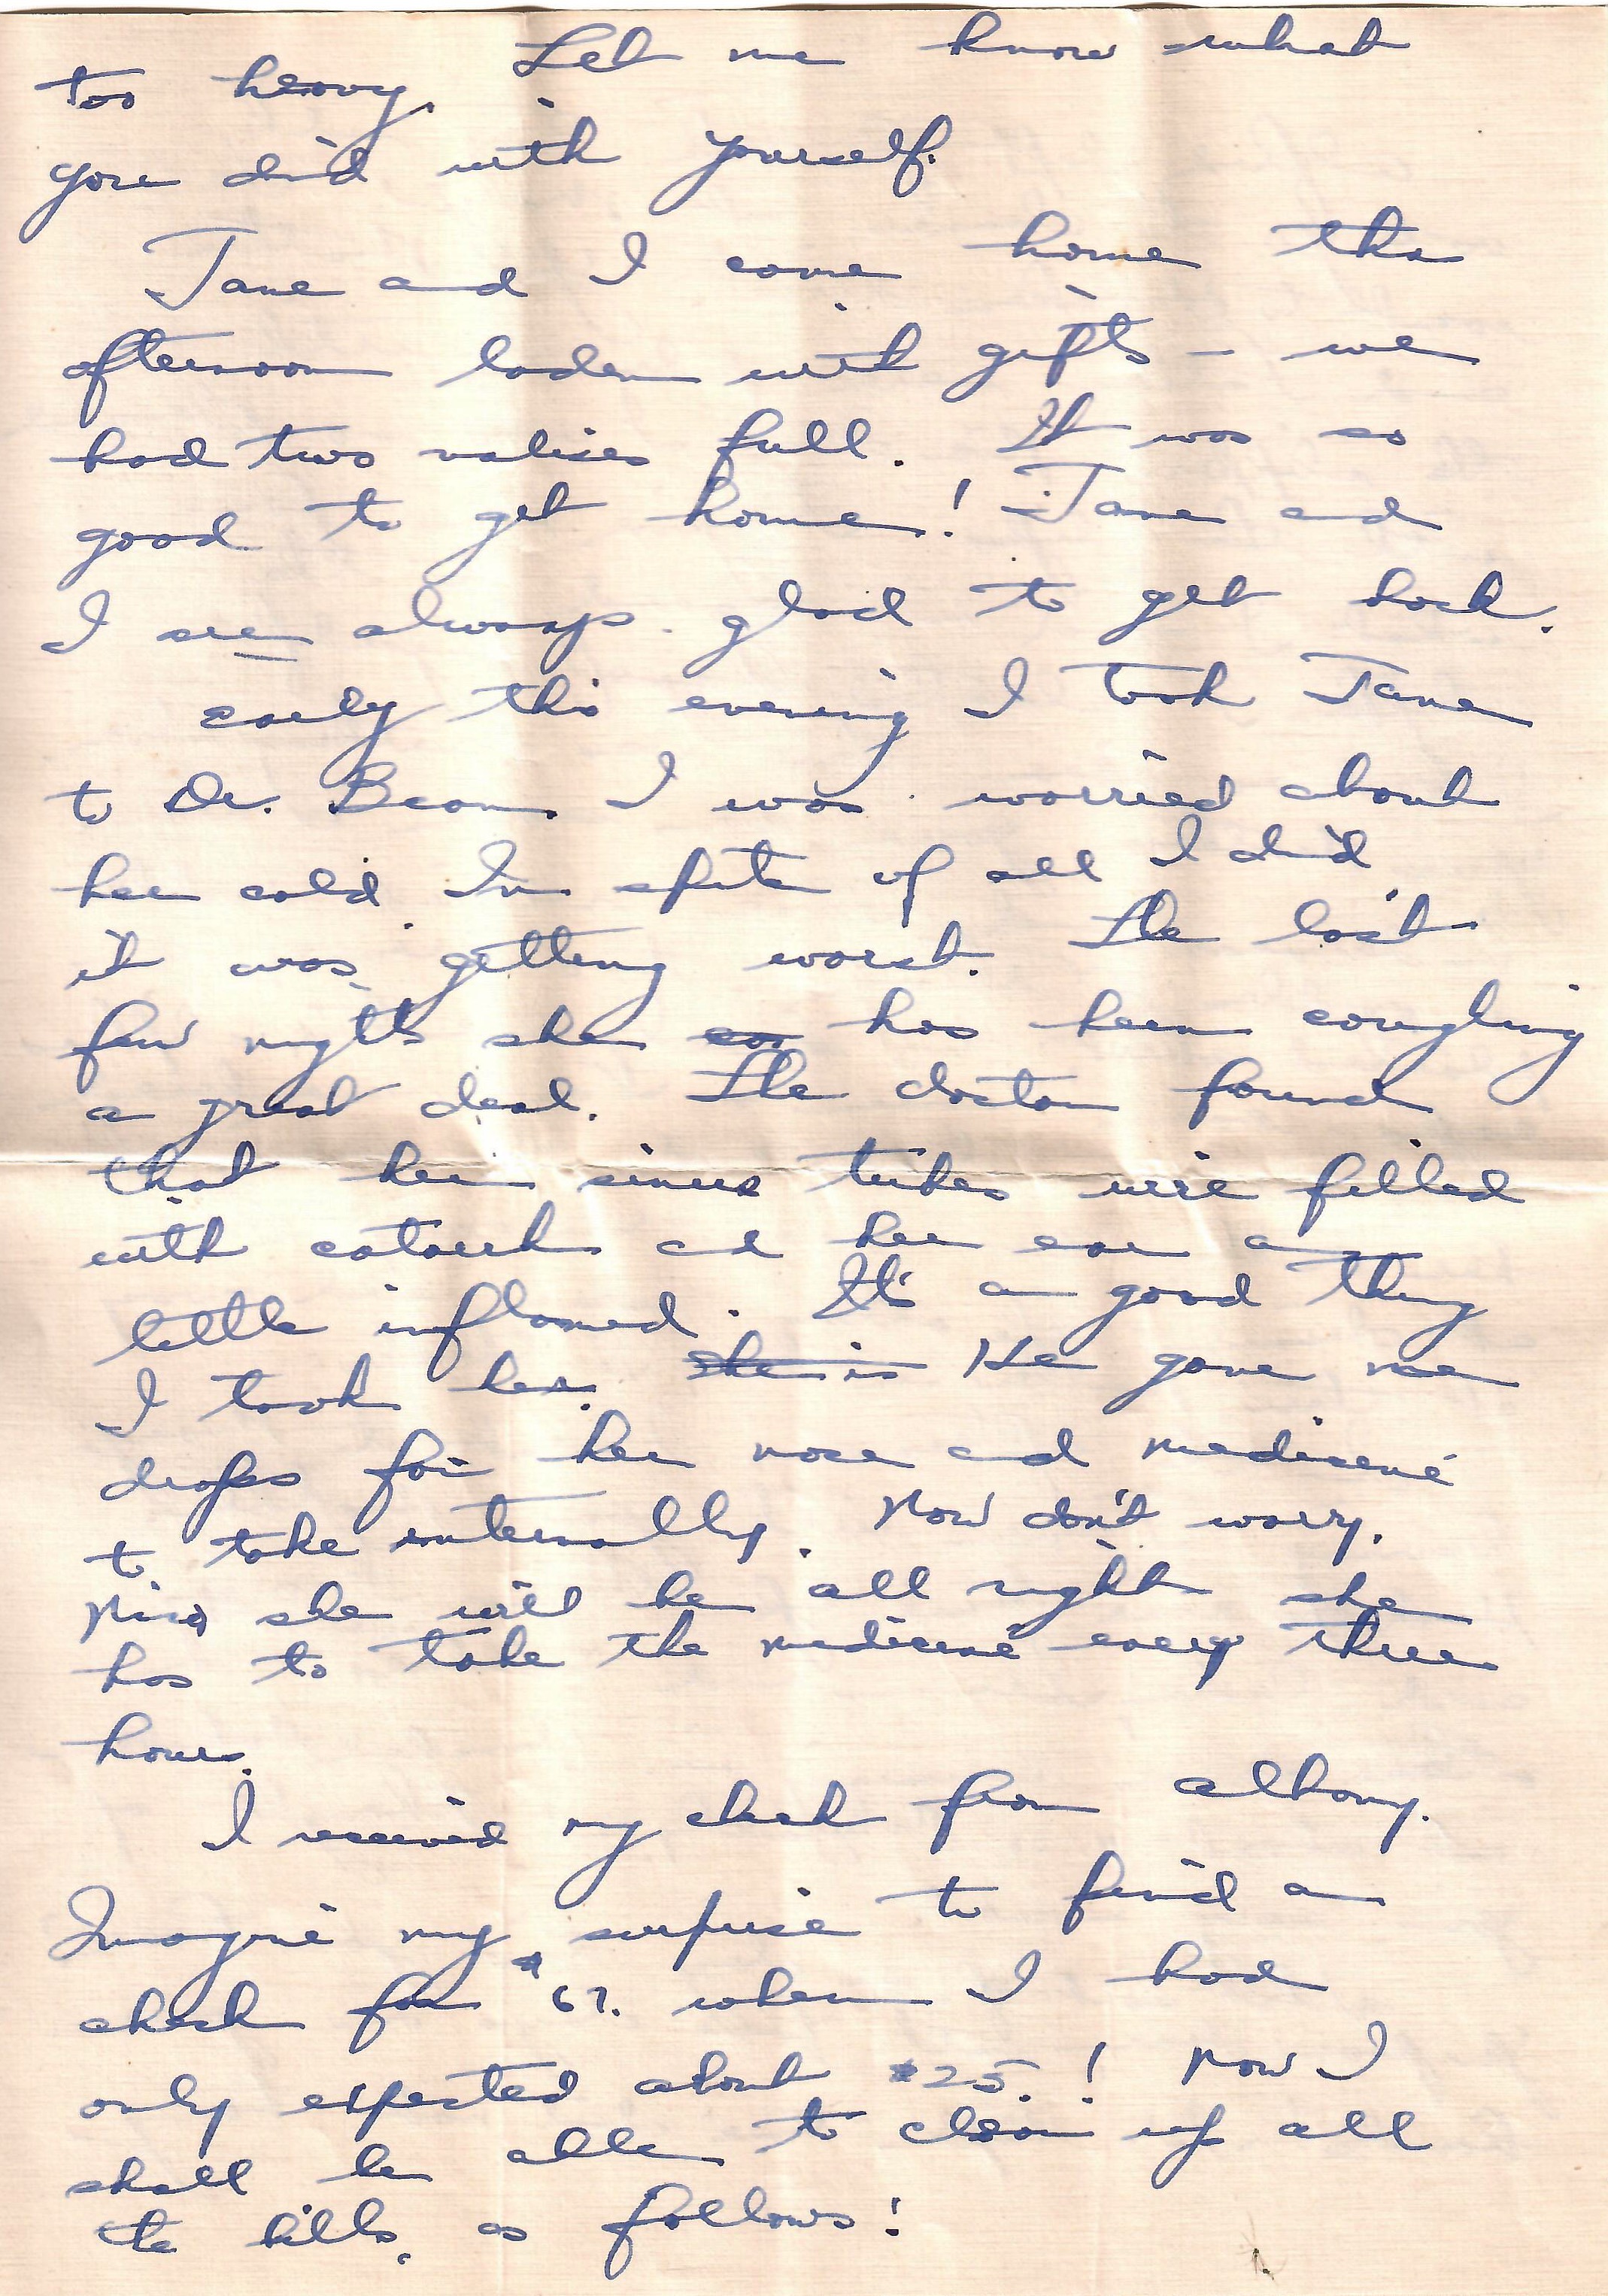 too heavy. Let me know what
you did with yourself.
Jane and I came home this
afternoon laden with gifts - we
had two valises full. It was so
good to get home! Jane and
I are always glad to get back.
Early this evening I took Jane
to Dr. Beam. I was worried about
her cold. In spite of all I did,
it was getting worst. The last
few nights she has been coughing
a great deal. The doctor found
that her sinus tubes were filled
with catarrh and her ear a
little inflamed. It's a good thing
I took her. She is He gave me
drops for her nose and medicine
to take internally. Now don't worry.
she will be all right she
has to take the medicine every three
hours.
I received my check from Albany.
Imagine my surprise to find a
check for $67. when I had
only expected about $25.! Now I
shall be able to clean up all
the bills, as follows: